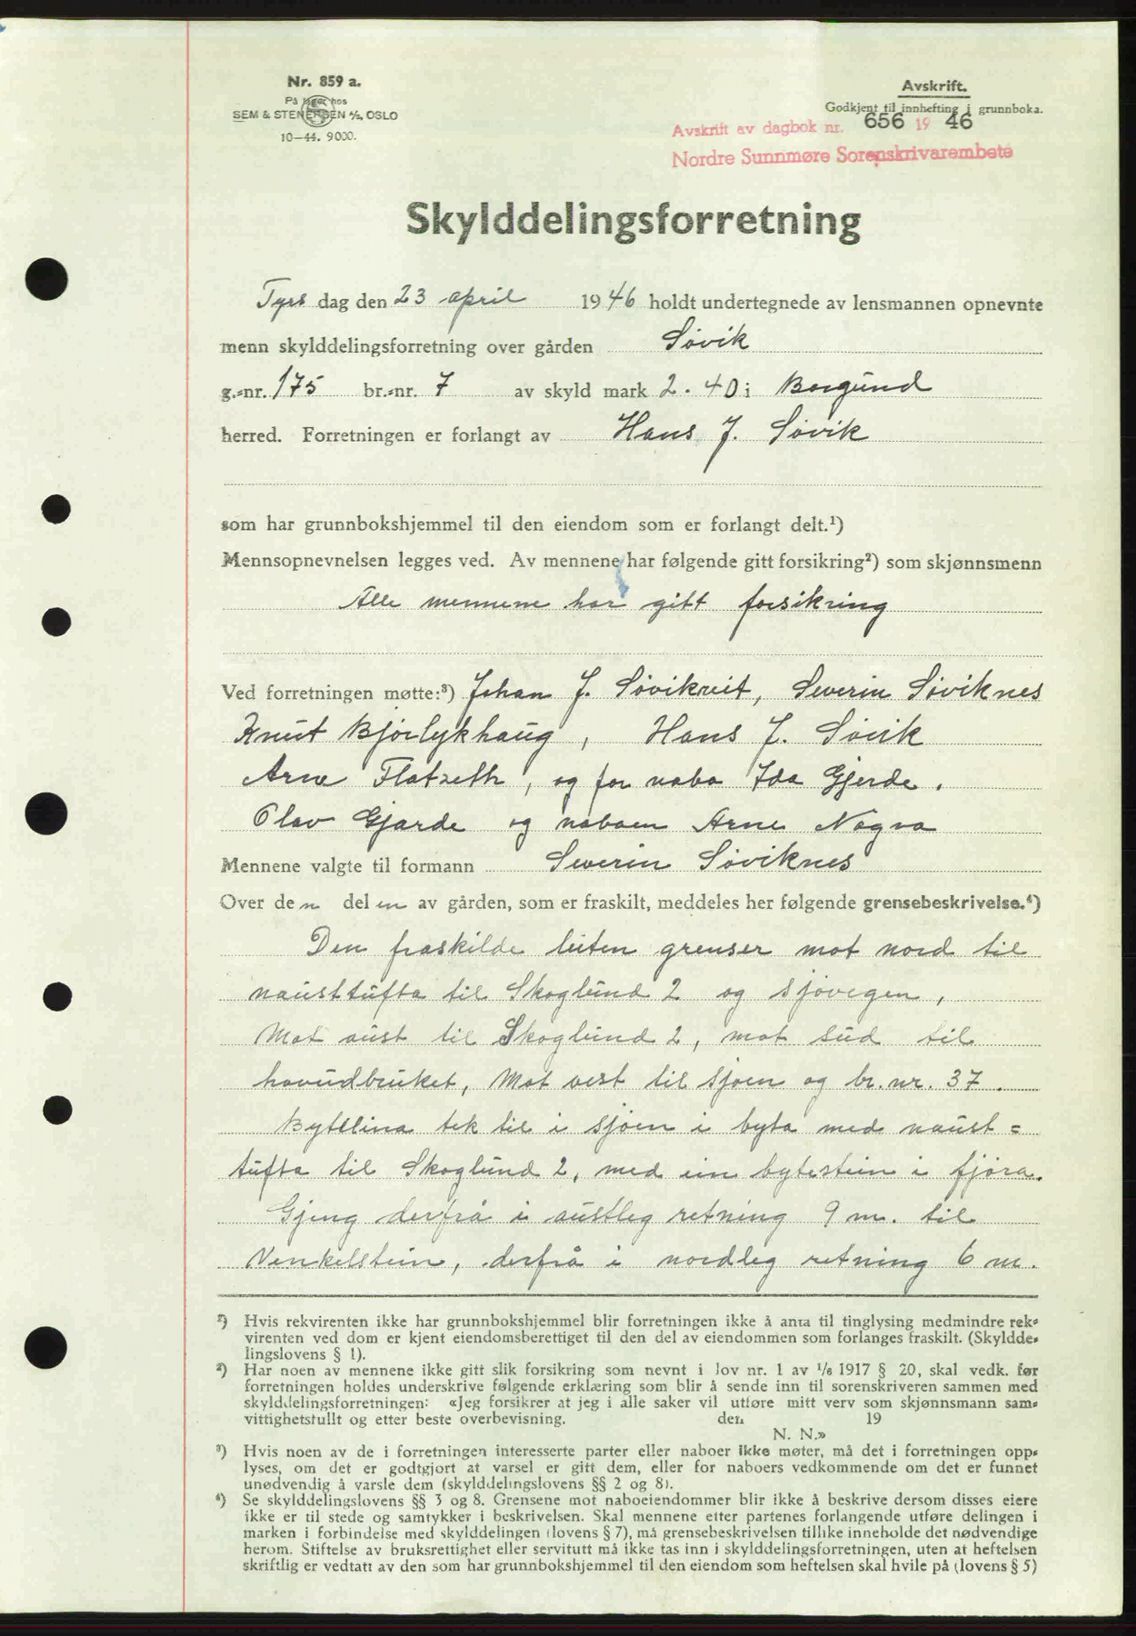 Nr. 859 a.
På lager hos
SEM & STENERSEN A/S, OSLO
10—44. 9000.
Avskrift.
Godkjent til innhefting i grunnboka.
Avskrift av dagbok nr. 656 19 46
Nordre Sunnmøre Sorenskrivarembete
Skylddelingsforretning
Tyrs dag den 23 april 1946 holdt undertegnede av lensmannen opnevnte
menn skylddelingsforretning over gården Søvik
g.-nr. 175 br.-nr. 7 av skyld mark 2.40 i Borgund
herred. Forretningen er forlangt av Hans J. Søvik
som har grunnbokshjemmel til den eiendom som er forlangt delt.¹)
Mennsopnevnelsen legges ved. Av mennene har følgende gitt forsikring²) som skjønnsmenn
Alle mennene har gitt forsikring
Ved forretningen møtte:³) Johan J. Søvikneit, Severin Søviknes
Knut Bjørlykhaug, Hans J. Søvik
Arne Flatseth, og for nabo Ida Gjerde.
Olav Gjærde og naboen Arne Nogva
Mennene valgte til formann Severin Søviknes
Over den delen av gården, som er fraskilt, meddeles her følgende grensebeskrivelse.⁴)
Den fraskilde luten grenser mot nord til
nausttufta til Skoglund 2 og sjøvegen,
Mot aust til Skoglund 2, mot sud til
hovudbruket, Mot vest til sjøen og br. nr. 37.
Byttelina tek til i sjøen i byta med naust=
tufta til Skoglund 2, med ein bytestein i fjøra.
Gjeng derfrå i austleg retning 9 m. til
Venkelstein, derfrå i nordleg retning 6 m.
¹) Hvis rekvirenten ikke har grunnbokshjemmel blir forretningen ikke å anta til tinglysing medmindre rek-
virenten ved dom er kjent eiendomsberettiget til den del av eiendommen som forlanges fraskilt. (Skyldde-
lingslovens § 1).
²) Har noen av mennene ikke gitt slik forsikring som nevnt i lov nr. 1 av 1/6 1917 § 20, skal vedk. før
forretningen holdes underskrive følgende erklæring som blir å sende inn til sorenskriveren sammen med
skylddelingsforretningen: «Jeg forsikrer at jeg i alle saker vil utføre mitt verv som skjønnsmann sam-
vittighetsfullt og etter beste overbevisning. den 19
N. N.»
³) Hvis noen av de i forretningen interesserte parter eller naboer ikke møter, må det i forretningen opp-
lyses, om det er godtgjort at varsel er gitt dem, eller for naboers vedkommende om det er funnet
unødvendig å varsle dem (skylddelingslovens §§ 2 og 8).
⁴) Se skylddelingslovens §§ 3 og 8. Grensene mot naboeiendommer blir ikke å beskrive dersom disses eiere
ikke er til stede og samtykker i beskrivelsen. Skal mennene etter partenes forlangende utføre delingen i
marken i forbindelse med skylddelingen (lovens § 7), må grensebeskrivelsen tillike inneholde det nødvendige
herom. Stiftelse av bruksrettighet eller servitutt må ikke tas inn i skylddelingsforretningen, uten at heftelsen
skriftlig er vedtatt av den som har grunnbokshjemmel til den eiendom som heftelsen skal hvile på (lovens § 5)